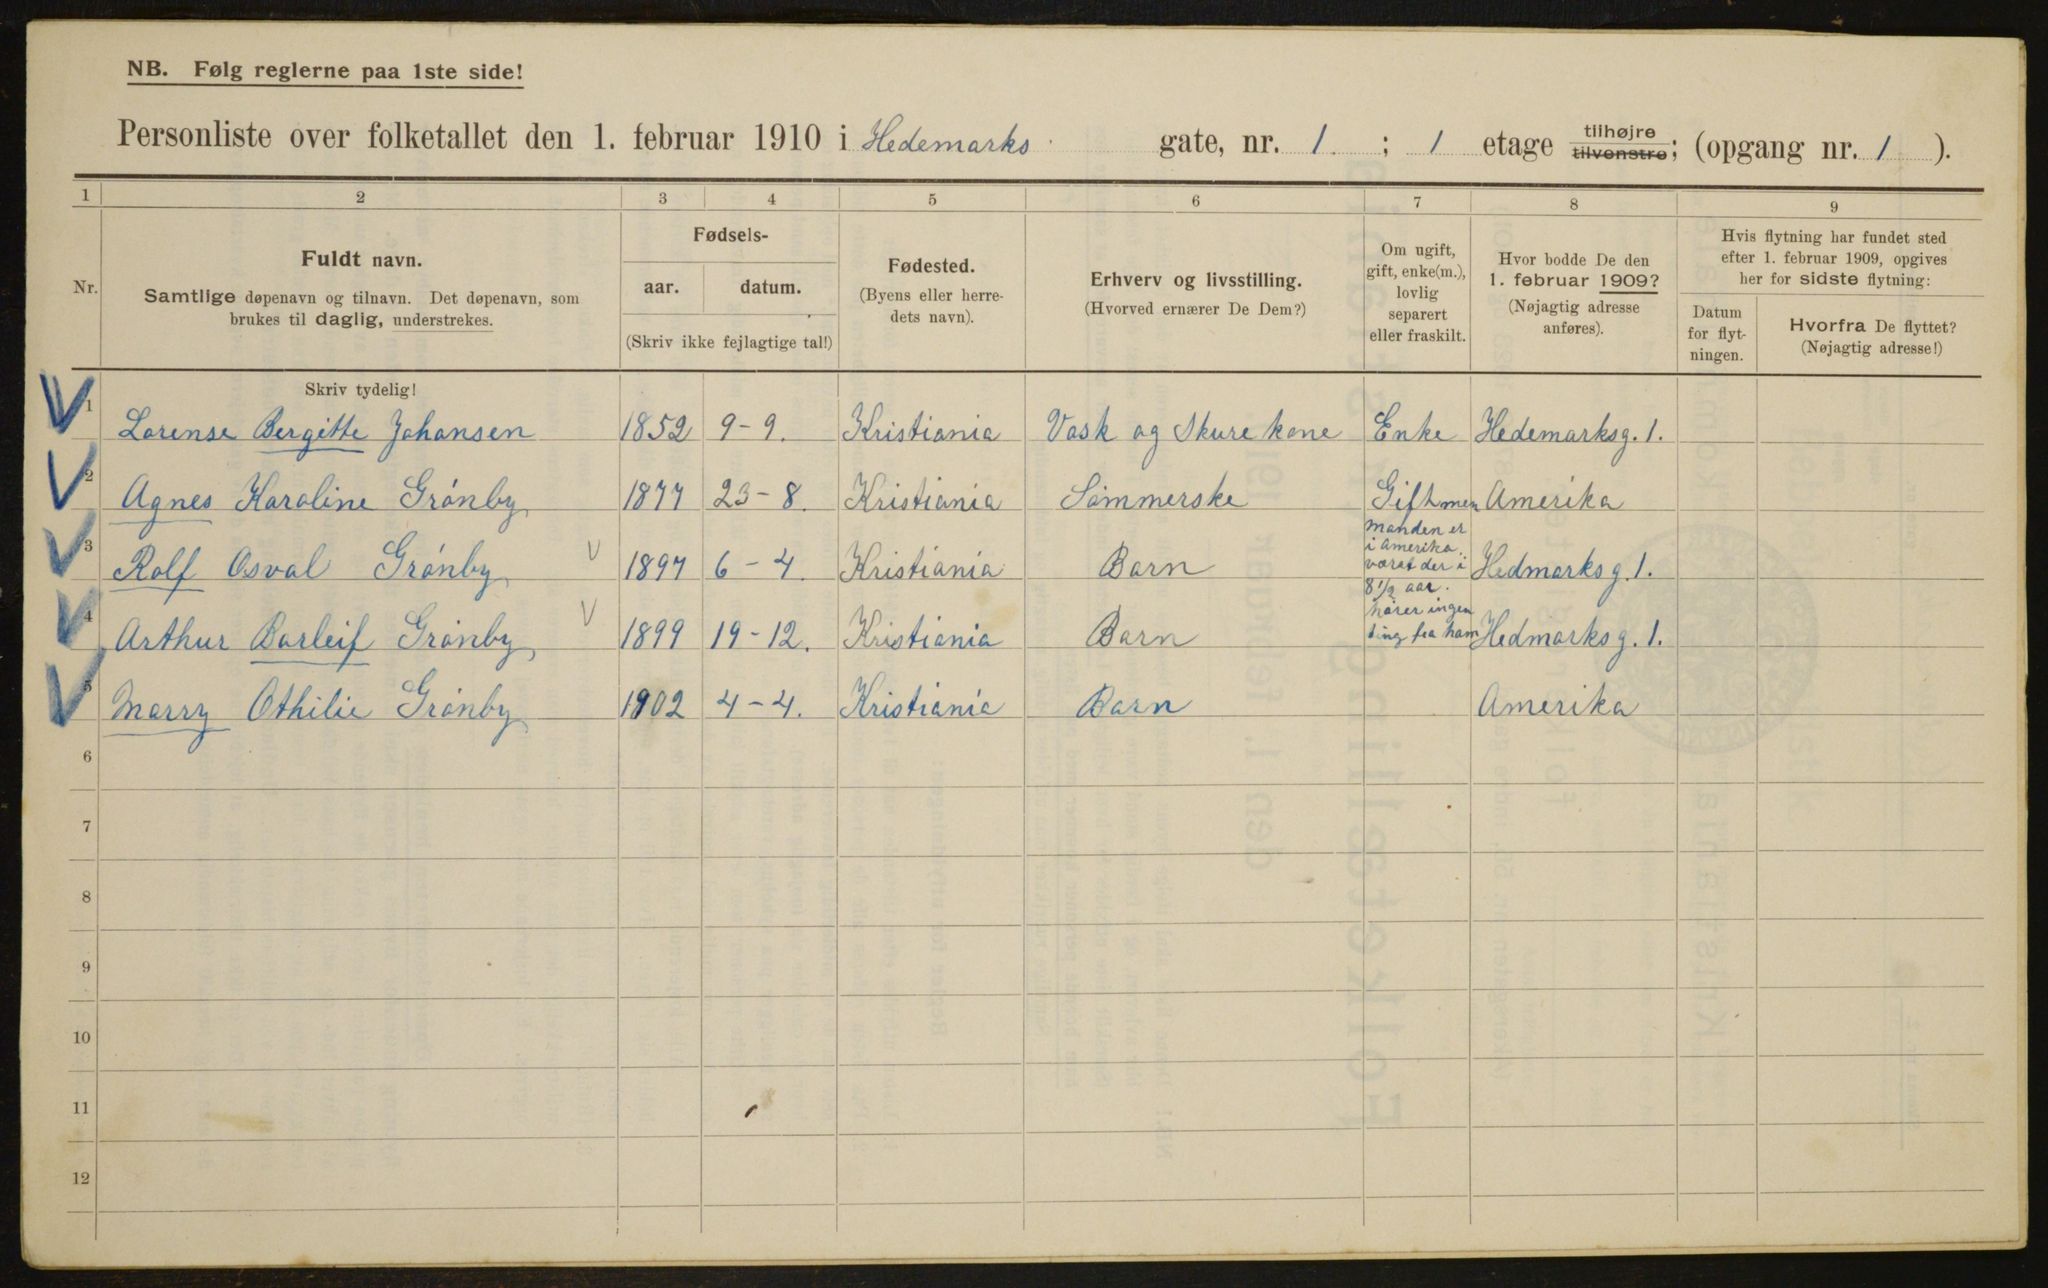 NB. Følg reglerne paa 1ste side!
Personliste over folketallet den 1. februar 1910 i Hedemarks gate, nr. 1 ; 1 etage tilhøjre tilvenstre; (opgang nr. 1 ).
1 2 3 4 5 6 7 8 9
Nr.
Fuldt navn.
Samtlige døpenavn og tilnavn. Det døpenavn, som
brukes til daglig, understrekes.
Fødsels-
aar. datum.
(Skriv ikke fejlagtige tal!)
Fødested.
(Byens eller herre-
dets navn).
Erhverv og livsstilling.
(Hvorved ernærer De Dem?)
Om ugift,
gift, enke(m.),
lovlig
separert
eller fraskilt.
Hvor bodde De den
1. februar 1909?
(Nøjagtig adresse
anføres).
Hvis flytning har fundet sted
efter 1. februar 1909, opgives
her for sidste flytning:
Datum
for flyt-
ningen.
Hvorfra De flyttet?
(Nøjagtig adresse!)
Skriv tydelig!
1 Lorense Bergitte Johansen 1852 9-9. Kristiania Vask og Skurekone Enke Hedemarksg. 1.
2 Agnes Karoline Grónby 1877 23-8. Kristiania Sömmerske Gift men Amerika
manden er
i Amerika.
3 Rolf Osval Grónby 1897 6-4. Kristiania Barn været der i Hedmarksg. 1.
8 1/2 aar.
hører ingen
4 Arthur Barleif Grónby 1899 19-12. Kristiania Barn ting fra ham Hedmarksg. 1.
5 Marry Othilie Grónby 1902 4-4. Kristiania Barn Amerika
6
7
8
9
10
11
12